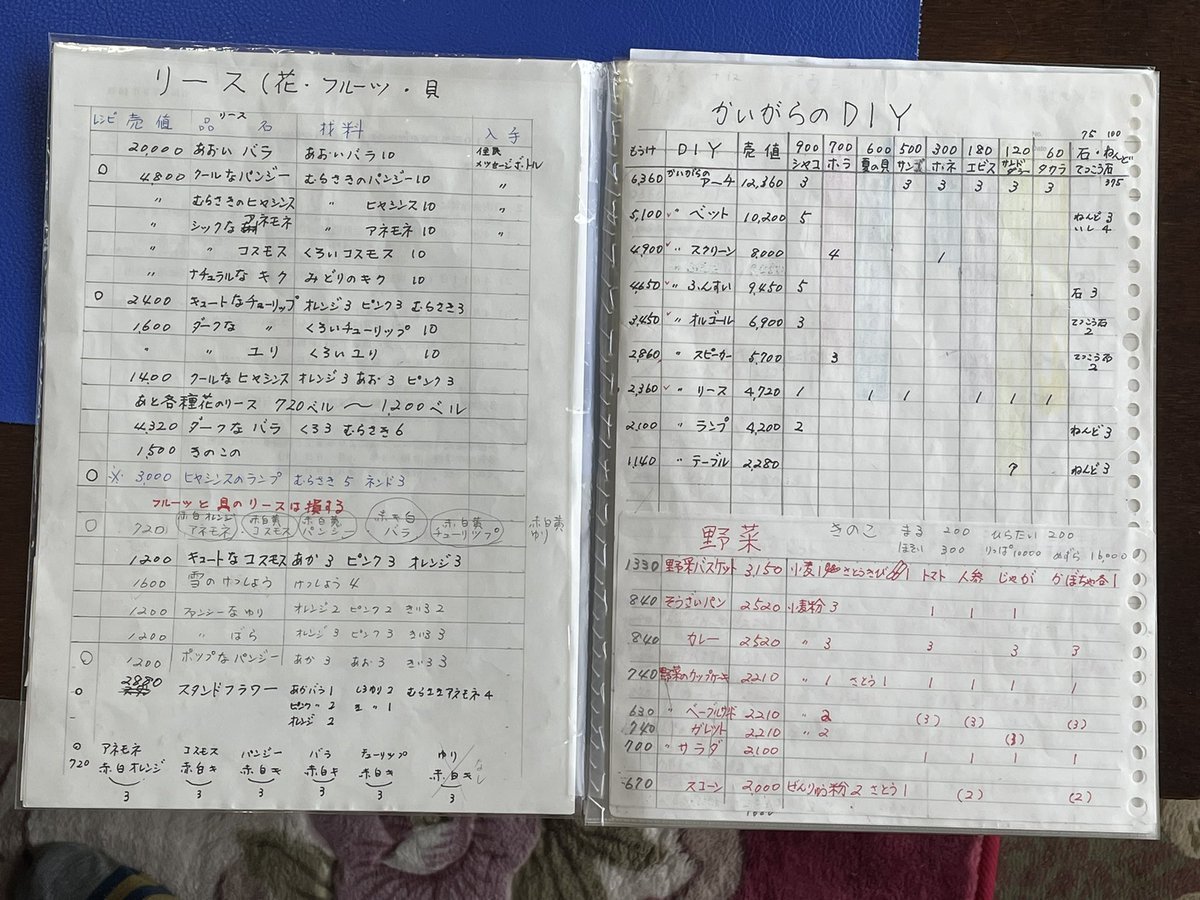 リース(花・フルーツ・貝
レシピ 売値 品リース名 材料 入手
20,000 あおいバラ あおいバラ10 住民 メッセージボトル
○ 4,800 クールなパンジー むらさきのパンジー10 〃
〃 むらさきのヒヤシンス 〃 ヒヤシンス10 〃
〃 シックなアネモネ 〃 アネモネ10 〃
〃 〃 コスモス くろいコスモス 10
〃 ナチュラルなキク みどりのキク 10
○ 2400 キュートなチューリップ オレンジ3 ピンク3 むらさき3
1,600 ダークな 〃 くろいチューリップ 10
〃 〃 ユリ くろいユリ 10
1400 クールなヒヤシンス オレンジ3 あお3 ピンク3
あと各種花のリース 720ベル〜1,200ベル
4,320 ダークなバラ くろ3 むらさき6
1,500 きのこの
○ ※ 3,000 ヒヤシンスのランプ むらさき5 ネンド3
フルーツと貝のリースは損する
○ 720 赤白オレンジアネモネ 赤白黄コスモス 赤白黄パンジー 赤キ白バラ 赤白黄チューリップ 赤白黄ゆり
1200 キュートなコスモス あか3 ピンク3 オレンジ3
1600 雪のけっしょう けっしょう4
1200 ファンシーなゆり オレンジ2 ピンク2 きいろ2
1200 〃 ばら オレンジ3 ピンク3 きいろ3
○ 1200 ポップなパンジー あか3 あお3 きいろ3
○ 2880 スタンドフラワー あかバラ1 しろゆり2 むらさきアネモネ4
ピンク〃2 〃1
オレンジ2
○ アネモネ コスモス パンジー バラ チューリップ ゆり
720 赤白オレンジ 赤白キ 赤白キ 赤白キ 赤白キ 赤白キ なし
3 3 3 3 3 3
かいがらのDIY
75 100
もうけ DIY 売値 900シャコ 700ホラ 600夏の貝 500サンゴ 300ホネ 180エビス 120サンドダラー 60タカラ 石・ねんど てっこう石 375
6,360 かいがらのアーチ 12,360 3 3 3 3 3 3
5,100 〃 ベット 10,200 5 ねんど3 いし4
4,900 〃 スクリーン 8,000 4 1
4,650 〃 ふんすい 9,450 5 石3
3,450 〃 オルゴール 6,900 3 てっこう石2
2,860 〃 スピーカー 5,700 3 てっこう石2
2,360 〃 リース 4,720 1 1 1 1 1 1
2,100 〃 ランプ 4,200 2 ねんど3
1,140 〃 テーブル 2,280 7 ねんど3
野菜 きのこ まる 200 ひらたい 200
ほそい 300 りっぱ10000 めずら 16,000
1330 野菜バスケット 3,150 小麦1 さとうきび1 トマト 人参 じゃが かぼちゃ各1
840 そうざいパン 2520 小麦粉3 1 1 1
840 カレー 2520 〃 3 3 3 3
740 野菜のカップケーキ 2210 〃 1 さとう1 1 1 1 1
630 〃 2210 〃 2 (3) (3) (3)
740 ガレット 2210 〃 2 (3)
700 〃 サラダ 2100 1 1 1 1
670 スコーン 2,000 ぜんりゅう粉2 さとう1 (2) (2)